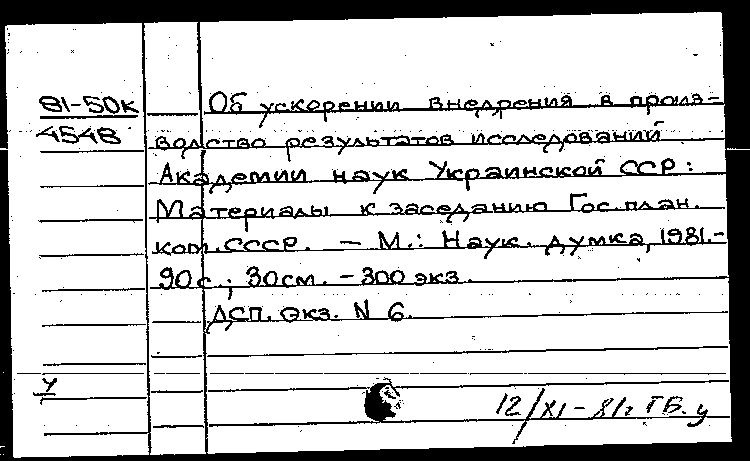 81-50к
4548
Об ускорении внедрения в произ-
водство результатов исследований
Академии наук Украинской ССР:
Материалы к заседанию Гос. план.
ком. СССР. – М.: Наук. думка, 1981.-
90 с.; 30 см. – 300 экз.
ДСП. Экз. N 6.
У
12/XI - 81г ГБ. у